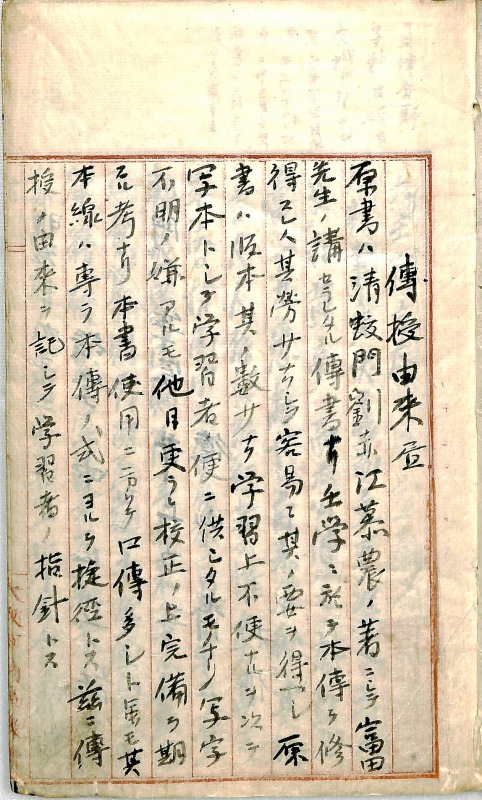 傳授由来㫖
原書ハ清蛟門劉赤江慕農ノ著ニシテ富田
先生ノ講セラレタル傳書ナリ壬学ニ於テ本傳ヲ修
得セハ其勞サナクシテ容易ニ其ノ要ヲ得ヘシ原
書ハ版本其ノ数少ナク学習上不便ナルヲ次テ
写本トシテ学習者ノ便ニ供シタルモノナリ写字
不明ノ嫌アルモ他日更ラニ校正ノ上完備ヲ期
スル考ナリ本書使用ニ方リテ口傳多シト雖モ其
本線ハ専ラ本傳ノ式ニヨルヲ捷径トス茲ニ傳
授ノ由来ヲ記シテ学習者ノ指針トス